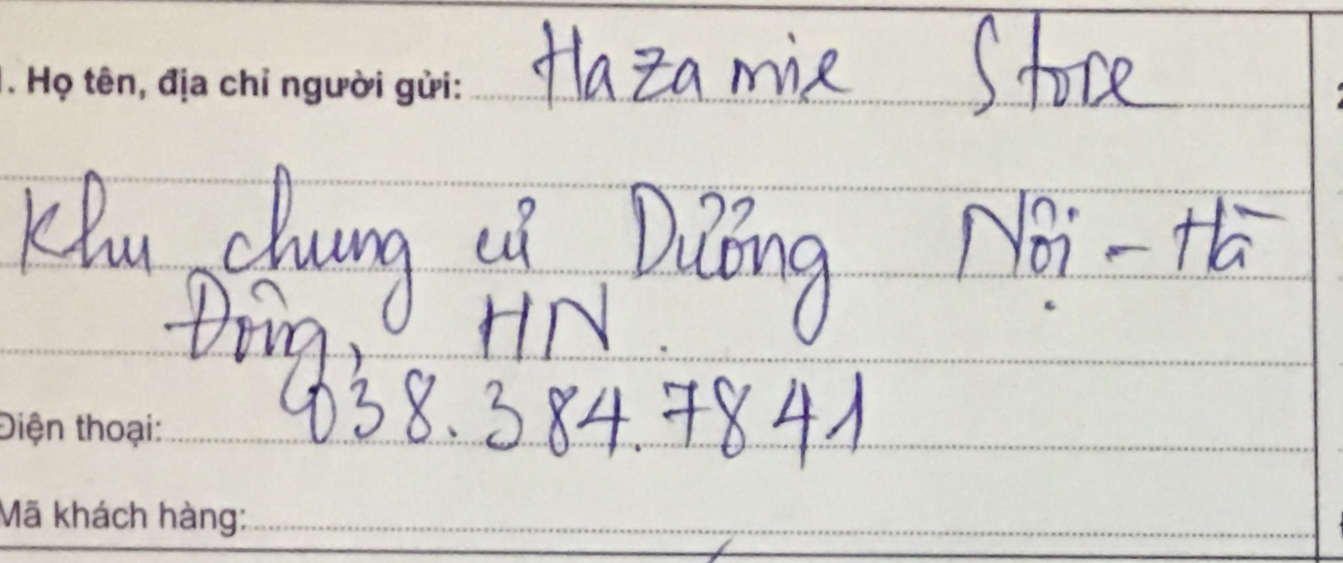 1. Họ tên, địa chỉ người gửi: Hazamie Store
Khu chung cư Dương Nội - Hà
Đông, HN.
Điện thoại: 038.384.7841
Mã khách hàng: